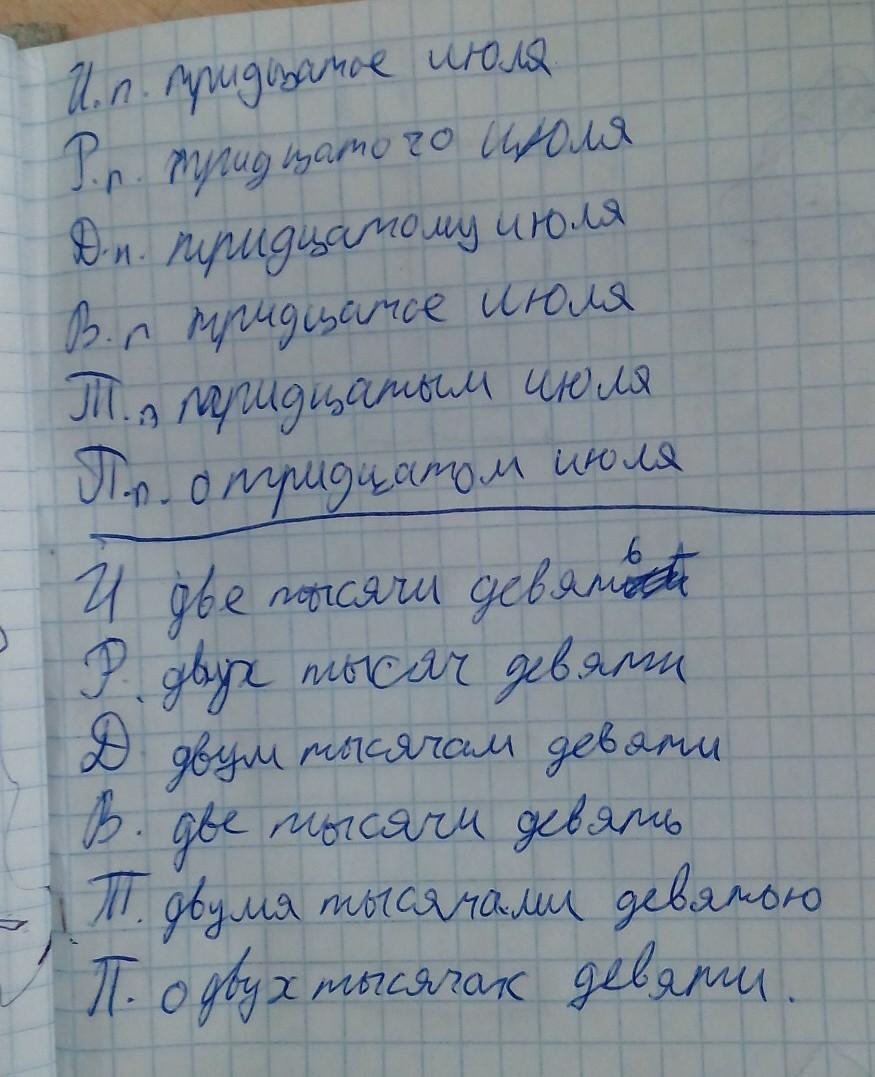 И.п. тридцатое июля
Р.п. тридцатого июля
Д.п. тридцатому июля
В.п тридцатое июля
Т.п тридцатым июля
П.п. о тридцатом июля
И две тысячи девять
Р. двух тысяч девяти
Д двум тысячам девяти
В. две тысячи девять
Т. двумя тысячами девятью
П. о двух тысячах девяти.